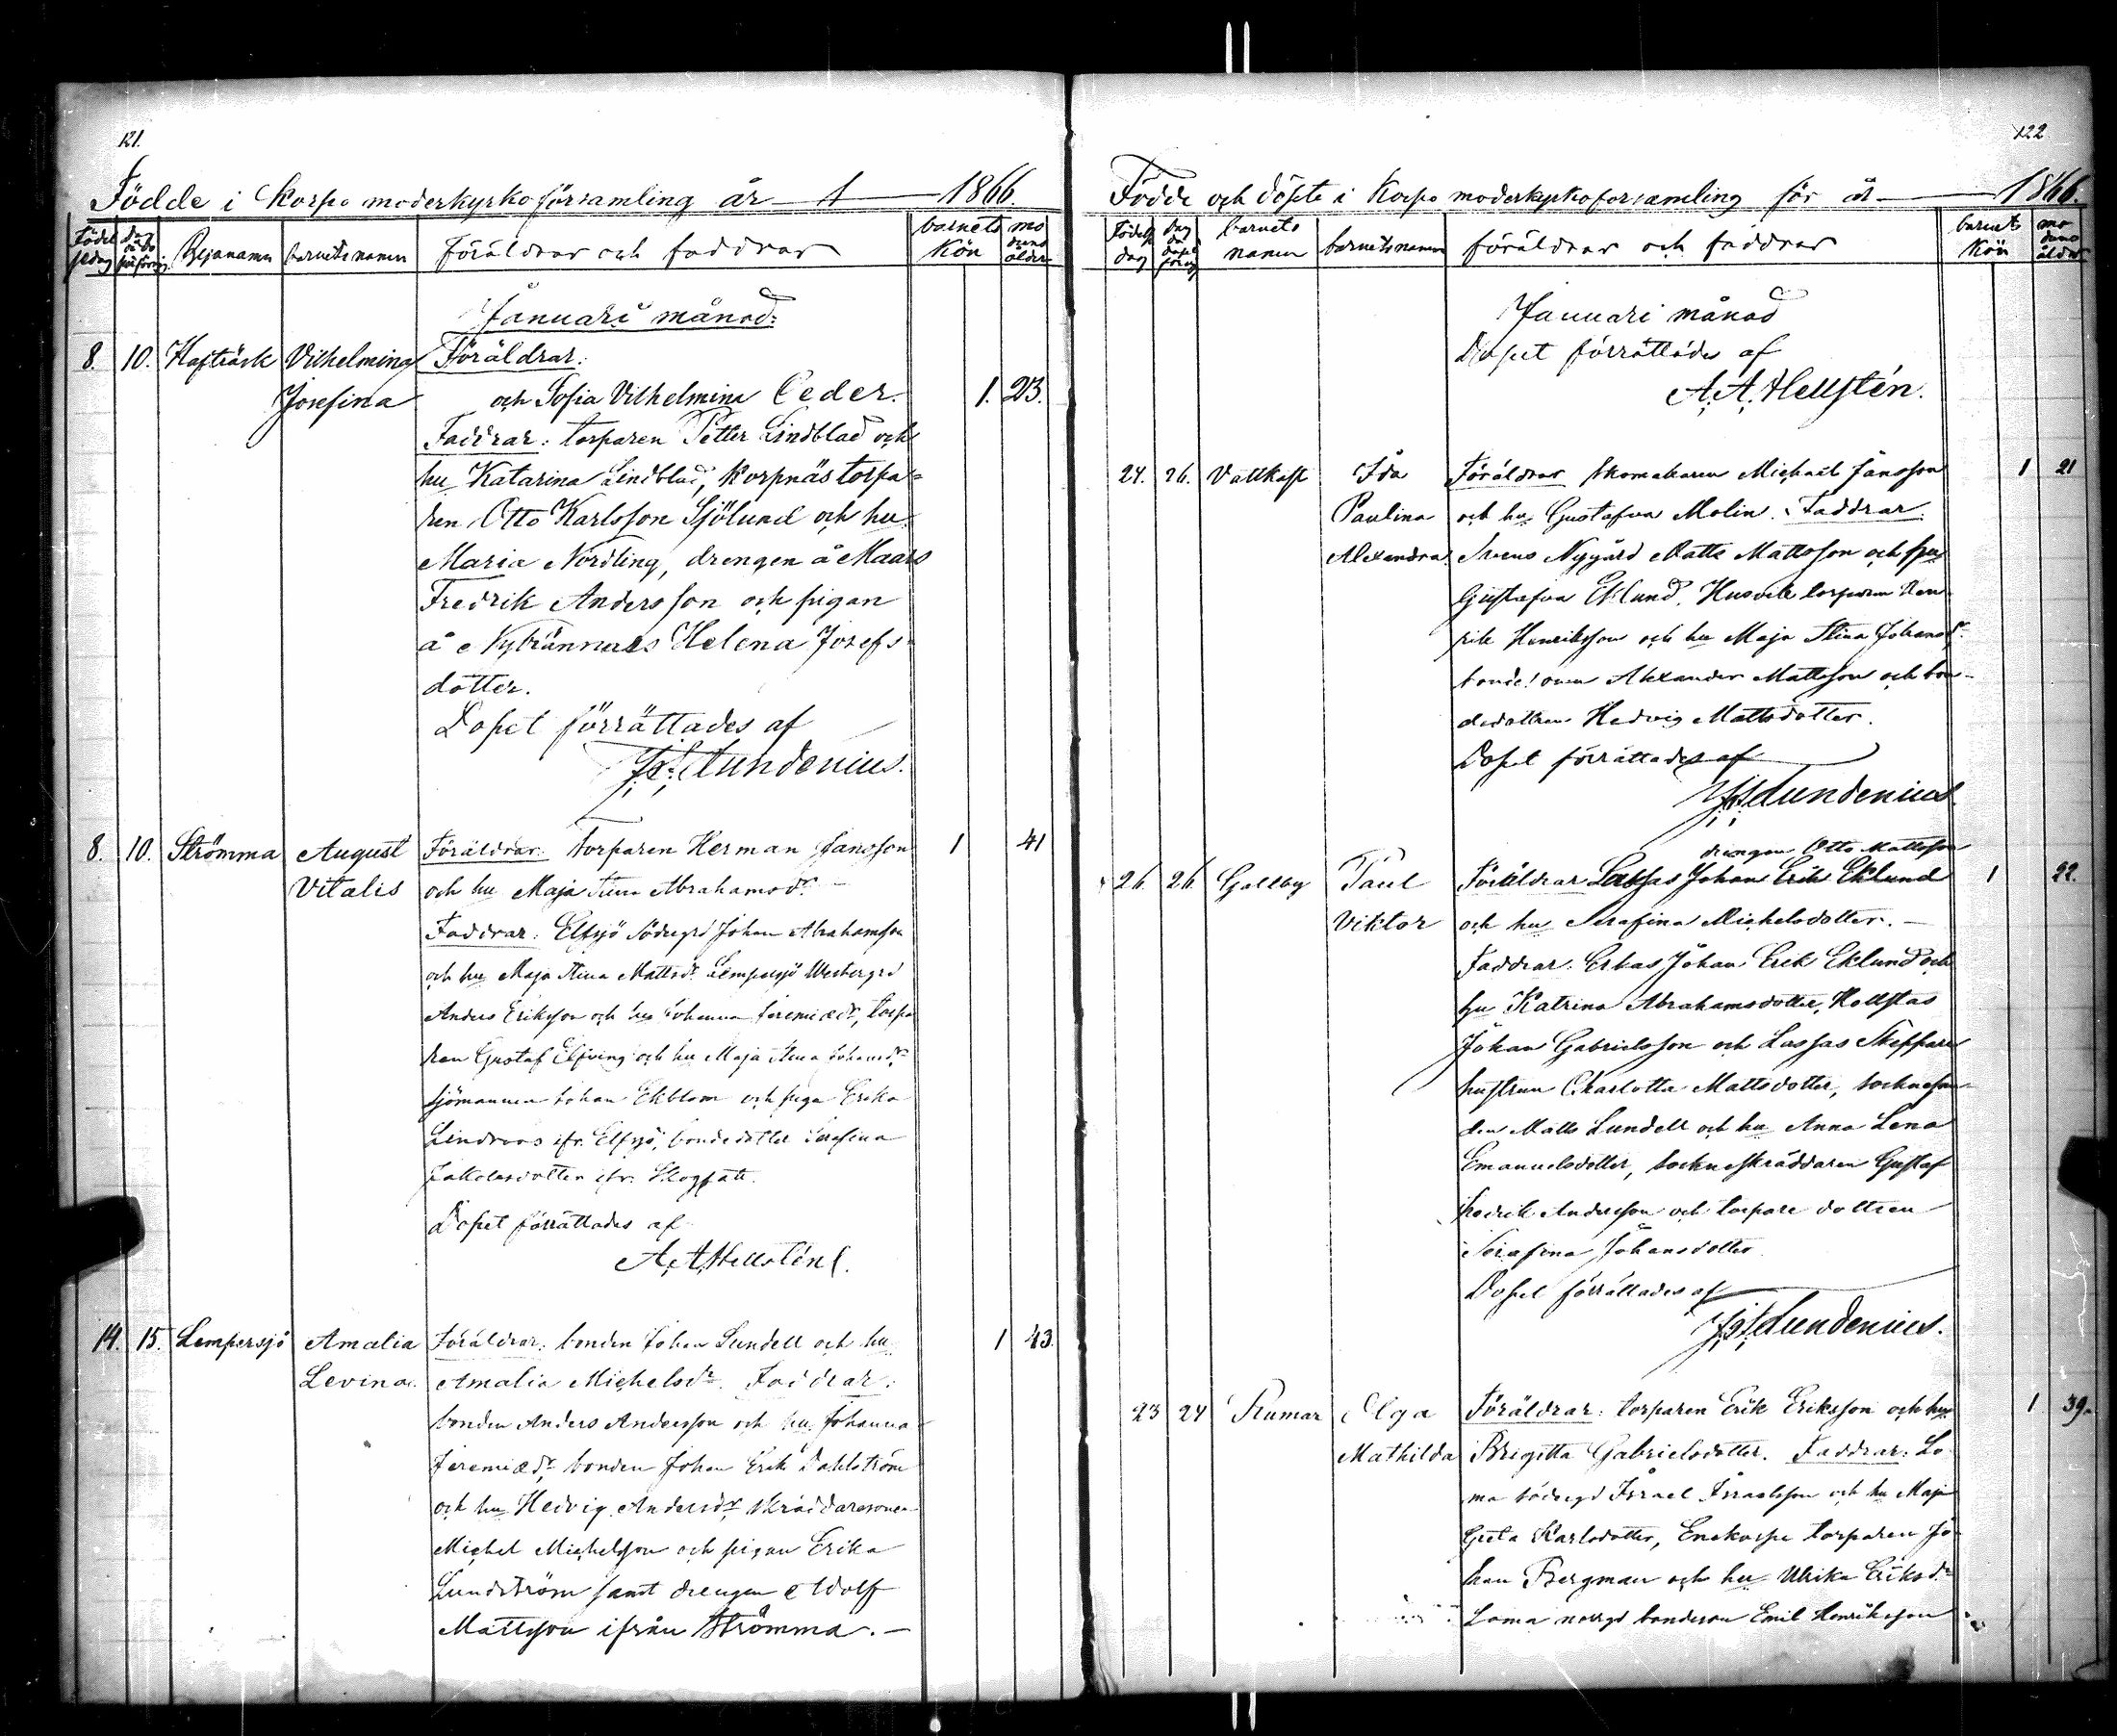 121.
Födde i Korpo moderkyrkoförsamling år 1866.
Byanamn barnets namn Föräldrar och faddrar barnets Kön moderns ålder
Januari månad:
8. 10. Vilhelmina Föräldrar:
Josefina och Sofia Vilhelmina Ceder. 1. 23.
Faddrar: torparen Petter Lindblad och
hu Katarina Lindblad, Korpnäs torpa-
ren Otto Karlsson Sjölund och hu
Maria Nordling, drengen å Maars
Fredrik Andersson och pigan
å Helena Josefs-
dotter.
Dopet förrättades af
Lundenius.
8. 10. Strömma August Föräldrar: torparen Herman Jansson 1 41
Vitalis och hu Maja Stina Abrahamsdr
Faddrar: Elfsjö Södergrd Johan Abrahamsson
och hu Maja Stina Mattsdr Lempersjö Westergrd
Anders Eriksson och hu Johanna Jeremiædr, torpa
ren Gustaf Elfving och hu Maja Stina Johansdr
sjömannen Johan Ekblom och piga Erika
Lindroos ifr. Elfsjö, bondedotter Serafina
ifr.
Dopet förrättades af
A. A. Hellstén
14. 15. Lempersjö Amalia Föräldrar: bonden Johan Lundell och hu 1 43.
Levina. Amalia Michelsdr. Faddrar:
bonden Anders Andersson och hu Johanna
Jeremiædr, bonden Johan Erik Dahlström
och hu Hedvig Andersdr, skräddaresonen
Michel Michelsson och pigan Erika
Lundström samt drengen Adolf
Mattsson ifrån Strömma.
122
Födde och döpte i Korpo moderkyrkoforsamling för år 1866.
Födelse dag barnets namn barnets namn föräldrar och faddrar barnets Kön moderns ålder
Januari månad
Dopet förrättades af
A. A. Hellstén.
24. 26. Vattkast Ida Föräldrar skomakaren Michael Jansson 1 21
Paulina och hu Gustafva Molin. Faddrar
Alexandra. Nygård Matts Mattsson och hu
Gustafva Eklund. torparen Hen
rik Henriksson och hu Maja Stina Johansdr.
bondesonen Alexander Mattsson och bon-
dedottren Hedvig Mattsdotter.
Dopet förrättades af
Lundenius
drengen Otto Mattsson
26. 26. Galtby Paul Föräldrar Lassas Johan Erik Eklund 1 22.
Viktor och hu Serafina Michelsdotter.
Faddrar: Erkas Johan Erik Eklund och
hu Katrina Abrahamsdotter,
Johan Gabrielsson och Lassas Skeppare
hustrun Charlotta Mattsdotter,
den Matts Lundell och hu Anna Lena
Emanuelsdotter, sockneskräddaren Gustaf
Fredrik Andersson och torpare dottren
Serafina Johansdotter
Dopet förrättades af
Lundenius.
23 24 Rumar Olga Föräldrar: torparen Erik Eriksson och hu 1 39.
Mathilda Brigitta Gabrielsdotter. Faddrar: Lo
ma södergd Israel Israelsson och hu Maja
Greta Karlsdotter, Enekorpe torparen Jo
han Bergman och hu Ulrika Eriksdr
Loma norrgd bondeson Emil Henriksson